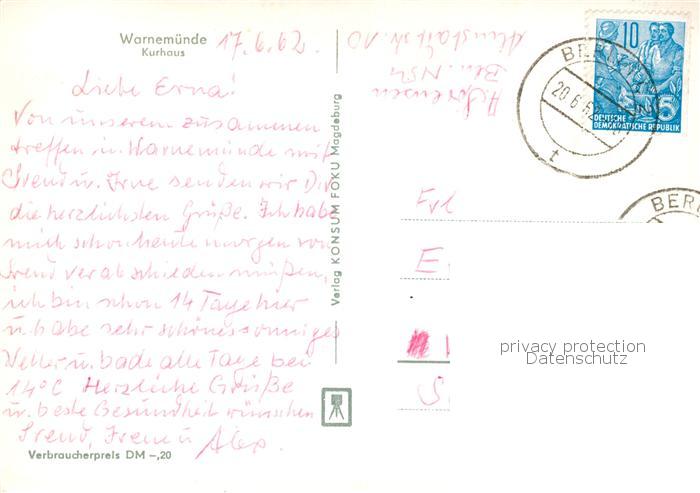 Warnemünde
Kurhaus
17.6.62.
Liebe Erna!
Von unserem zusammen
treffen in Warnemünde mit
u. senden wir Dir
die herzlichsten Grüße. Ich habe
mich schon heute morgen von
verabschieden müßen,
ich bin schon 14 Tage hier
u. habe sehr schönes sonniges
Wetter u. bade alle Tage bei
14°C Herzliche Grüße
u. beste Gesundheit wünschen
Irene u.
Verbraucherpreis DM -,20
Verlag KONSUM FOKU Magdeburg
10
5
DEUTSCHE
DEMOKRATISCHE REPUBLIK
BERLIN
20.6.6
t
BERL
Frl
E
S
privacy protection
Datenschutz